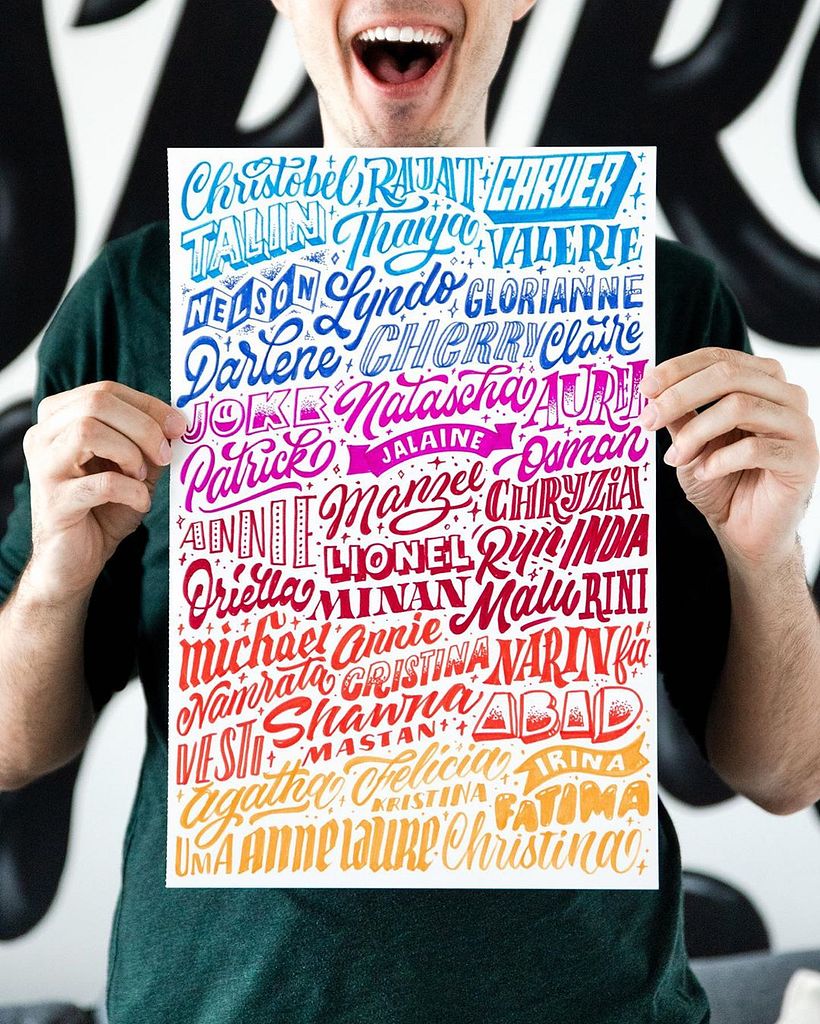 Christobel RAJAT CARVER
TALIN Thanya VALERIE
NELSON Lyndo GLORIANNE
Darlene CHERRY Claire
JOKE Natascha AUREL
Patrick JALAINE Osman
ANNIE Manzel CHRYZIA
LIONEL Ryn INDIA
Oriella MINAN Malu RINI
michael Annie NARIN fia
Namrata CRISTINA
Shawna ABAD
VESTI MASTAN
Agatha Felicia IRINA
KRISTINA FATIMA
UMA Annelaure Christina